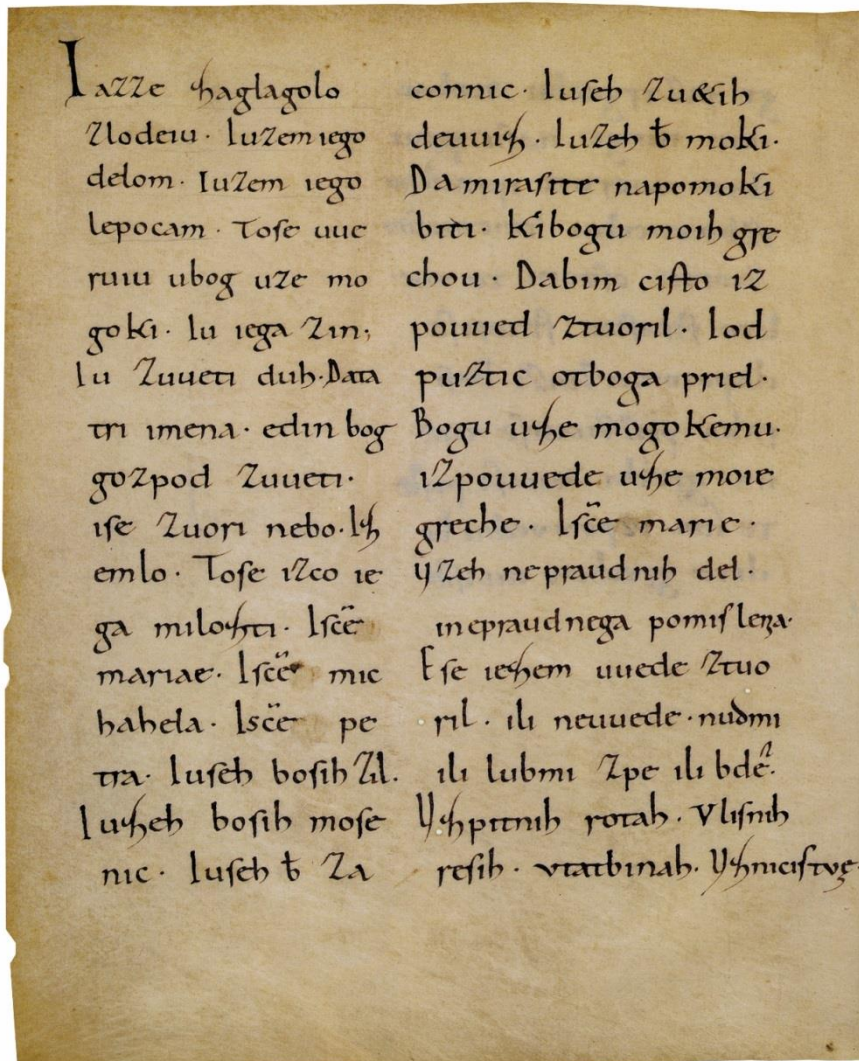 Iazze ȥaglagolo
zlodeiu · Iuzem iego
delom · Iuzem iego
lepocam · Tose uue
ruiu ubog uze mo
goki · Iu iega Zin;
Iu Zuueti duh · Data
tri imena · edin bog
gozpod Zuueti ·
ise Zuori nebo · Iȥ
emlo · Tose izco ie
ga miloȥti · Isc̄e
mariae · Isc̄e mic
hahela · Isc̄e pe
tra · Iuseh bosih Zil.
Iuȥeh bosih mose
nic · Iuseh b̄ Za
connic · Iuseh Zu&ih
deuuiȥ · Iuzeh b̄ moki ·
Da mirasite napomoki
biti · Kibogu moih gre
chou · Dabim cisto iz
pouued ztuoril · Iod
puztic otboga priel ·
Bogu uȥe mogokemu ·
izpouuede uȥe moie
greche · Isc̄e marie ·
Uzeh nepraudnih del ·
inepraudnega pomislena ·
Ese ieȥem uuede ztuo
ril · ili neuuede · nudmi
ili lubmi Zpe ili bde ·
Uȥpitnih rotah · Vlisnih
resih · vtatbinah · Uȥnicistve